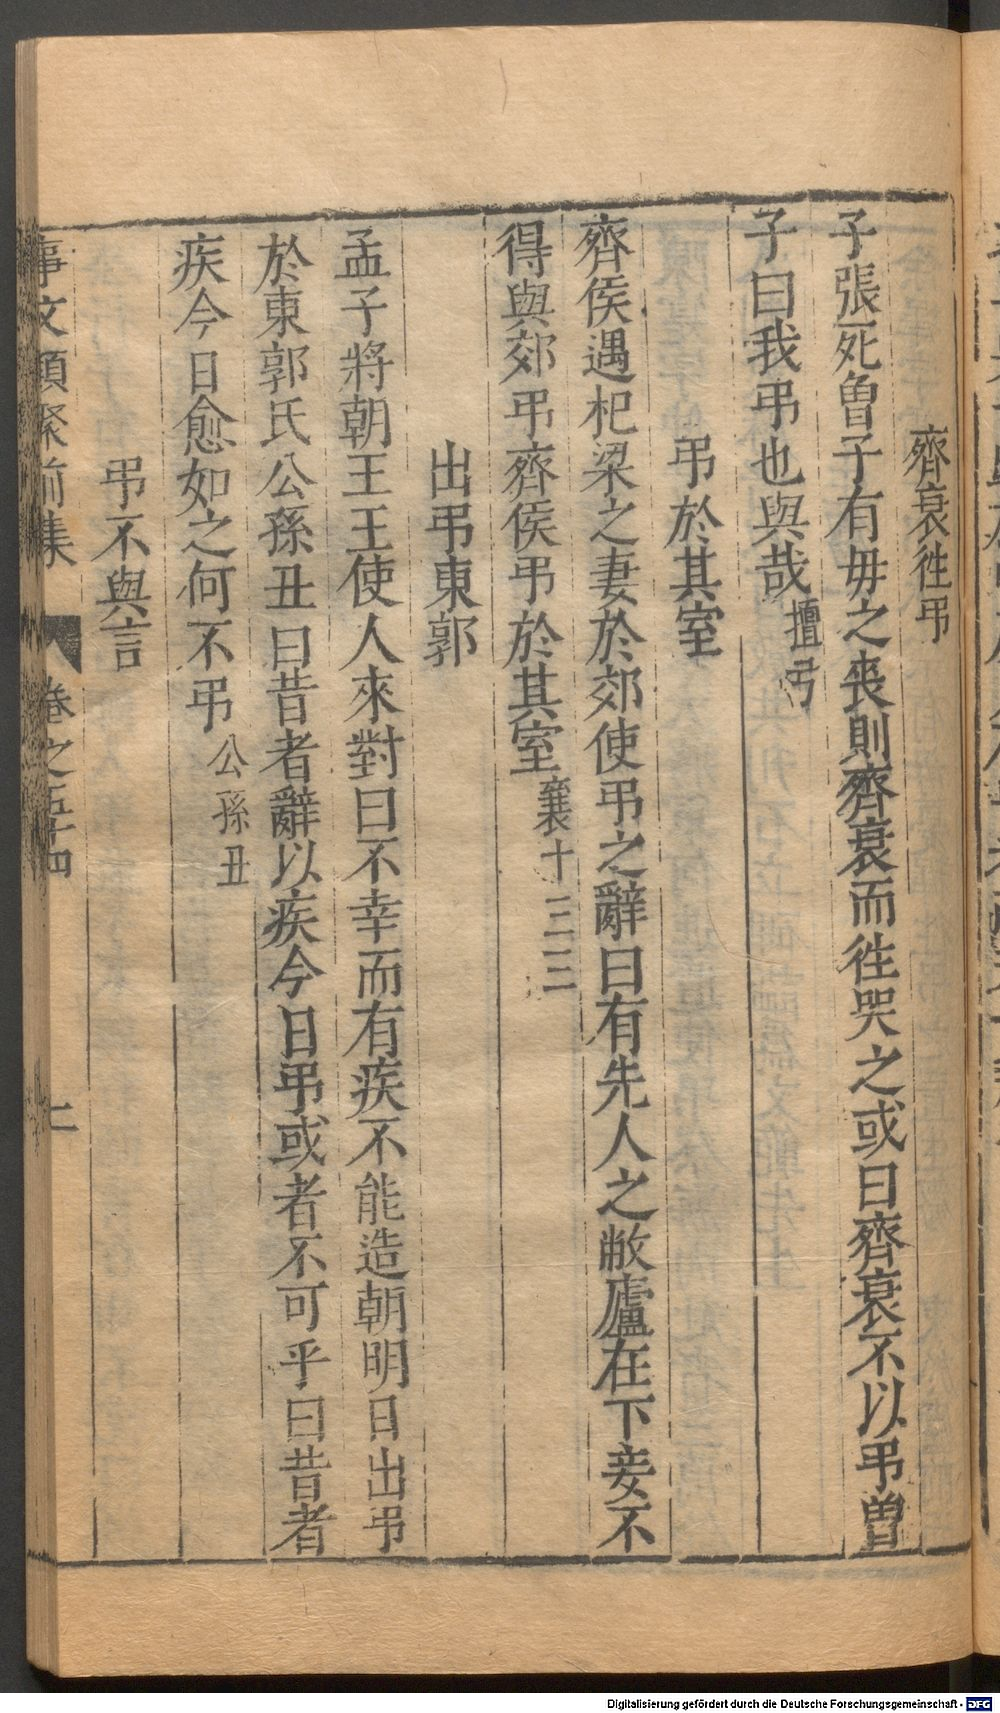 齊衰徃弔
子張死曽子有毋之喪則齊衰而徃哭之或曰齊衰不以弔曽
子曰我弔也與哉擅弓
弔於其室
齊侯遇杞梁之妻於郊使弔之辭曰有先人之敝廬在下妾不
得與郊弔齊侯弔於其室襄十三三
出弔東郭
孟子將朝王王使人來對曰不幸而有疾不能造朝明日出弔
於東郭氏公孫丑曰昔者辭以疾今日弔或者不可乎曰昔者
疾今日愈如之何不弔公孫丑
弔不與言
事文類聚前集 卷之五十四
Digitalisierung gefördert durch die Deutsche Forschungsgemeinschaft - DFG